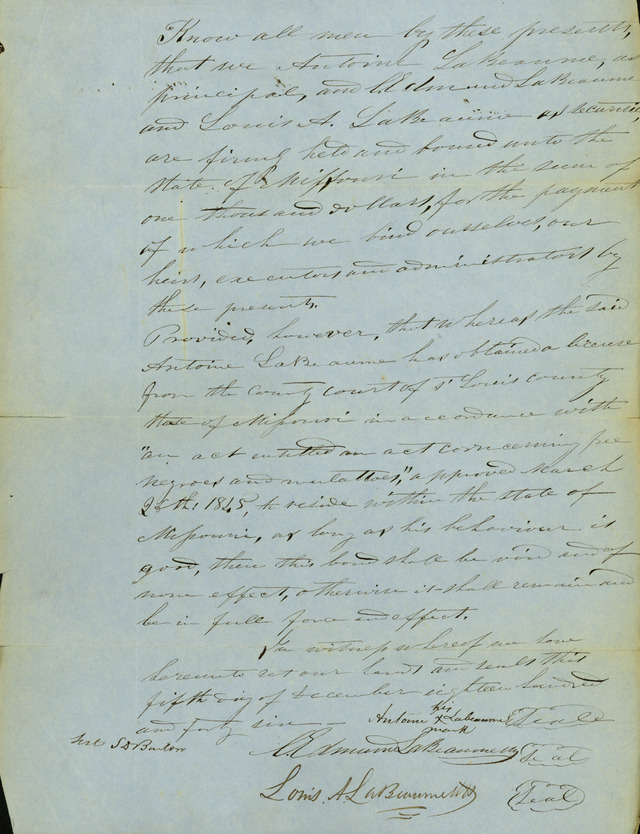 Know all men by these presents,
that we Antoine LaBeaume, as
principal, and C. Edmund LaBeaume
and Louis A. LaBeaume as securities,
are firmly held and bound unto the
state of Missouri in the sum of
one thousand dollars, for the payment
of which we bind ourselves, our
heirs, executors and administrators by
these presents.
Provided, however, that whereas the said
Antoine LaBeaume has obtained a license
from the county court of St Louis county
State of Missouri in accordance with
"an act entitled an act concerning free
negroes and mulattoes," approved March
th, 1845, to reside within the state of
Missouri, as long as his behaviour is
good, then this bond shall be void and of
none effect, otherwise it shall remain and
be in full force and effect.
In witness whereof we have
hereunto set our hands and seals this
fifth day of December eighteen hundred
and forty six —
his
Antoine X Labeaume Seal
mark
Test S D Barlow
C. Edmund LaBeaume Seal
Louis A LaBeaume Seal